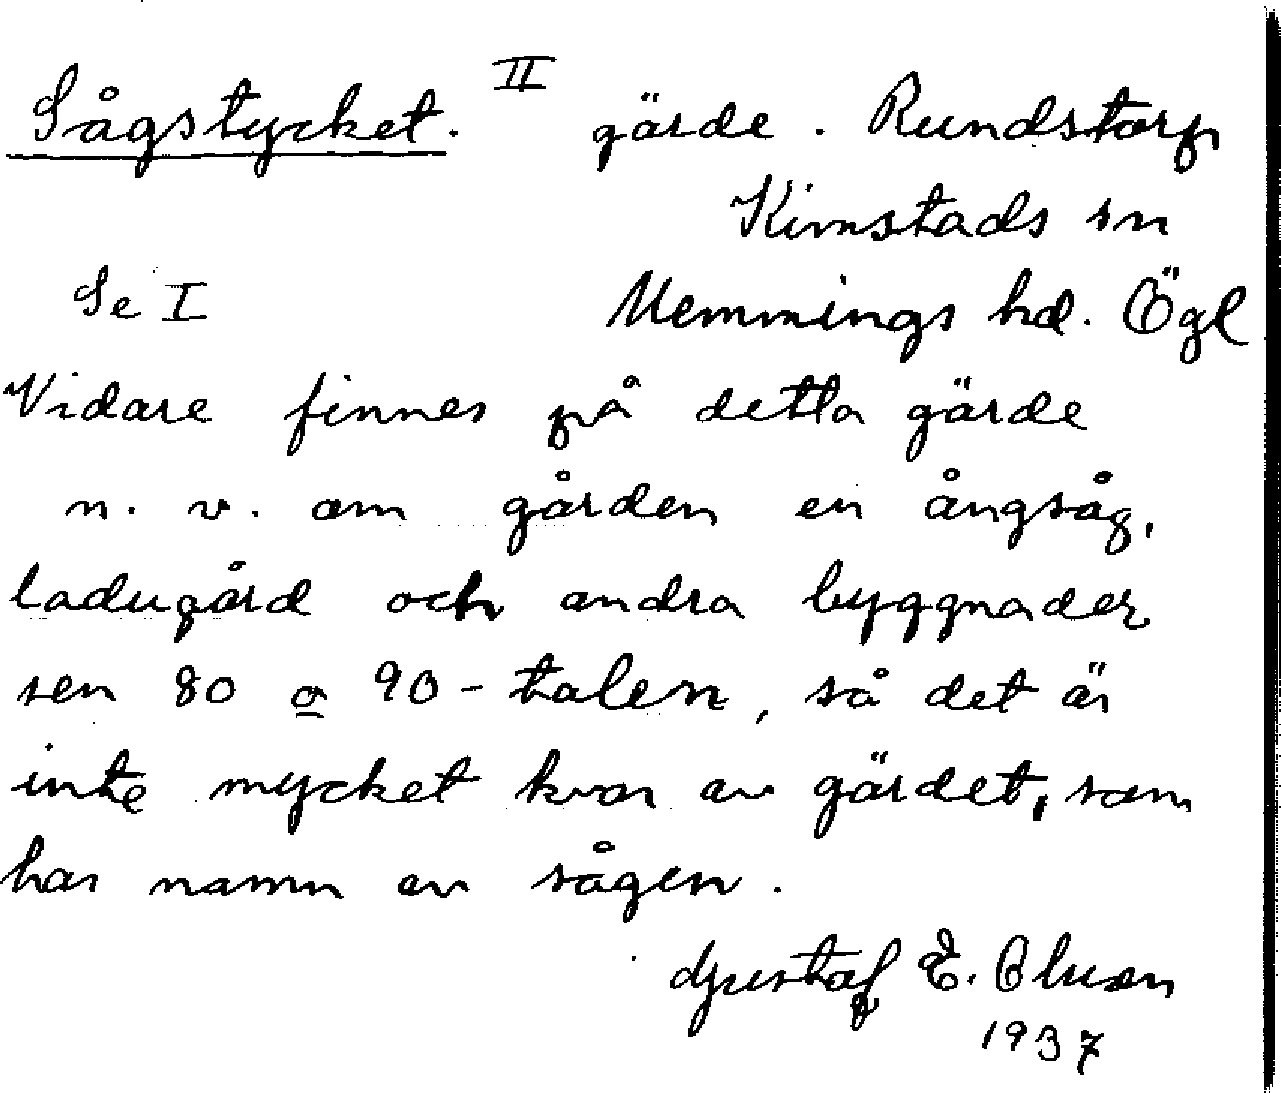 Sågstycket. II gärde. Rundstorp
Kimstads sn
Se I Memmings hd. Ögl
Vidare finnes på detta gärde
n. v. om gården en ångsåg,
ladugård och andra byggnader
sen 80 o 90-talen, så det är
inte mycket kvar av gärdet, som
har namn av sågen.
Gustaf E. Olson
1937